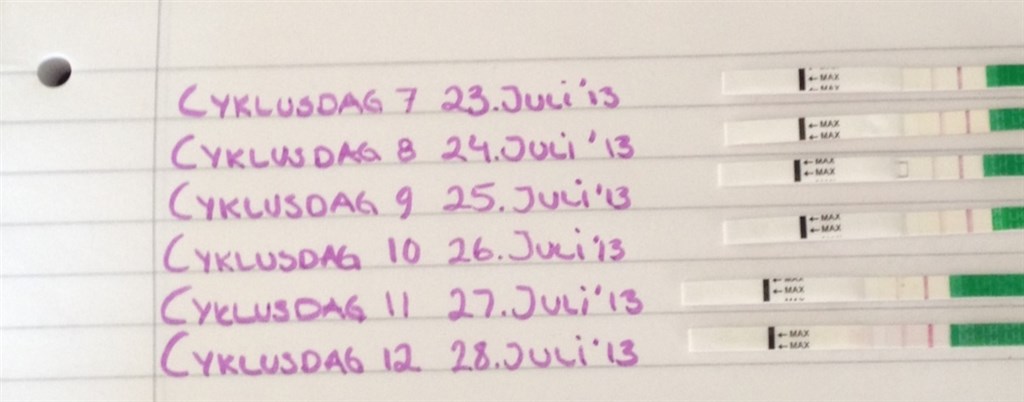 CYKLUSDAG 7 23. JULI '13 ←MAX MAX
CYKLUSDAG 8 24. JULI '13 ←MAX ←MAX
CYKLUSDAG 9 25. JULI '13 ←MAX ←MAX
CYKLUSDAG 10 26. JULI '13 ←MAX ←MAX
CYKLUSDAG 11 27. JULI '13 MAX ←MAX
CYKLUSDAG 12 28. JULI '13 ←MAX ←MAX